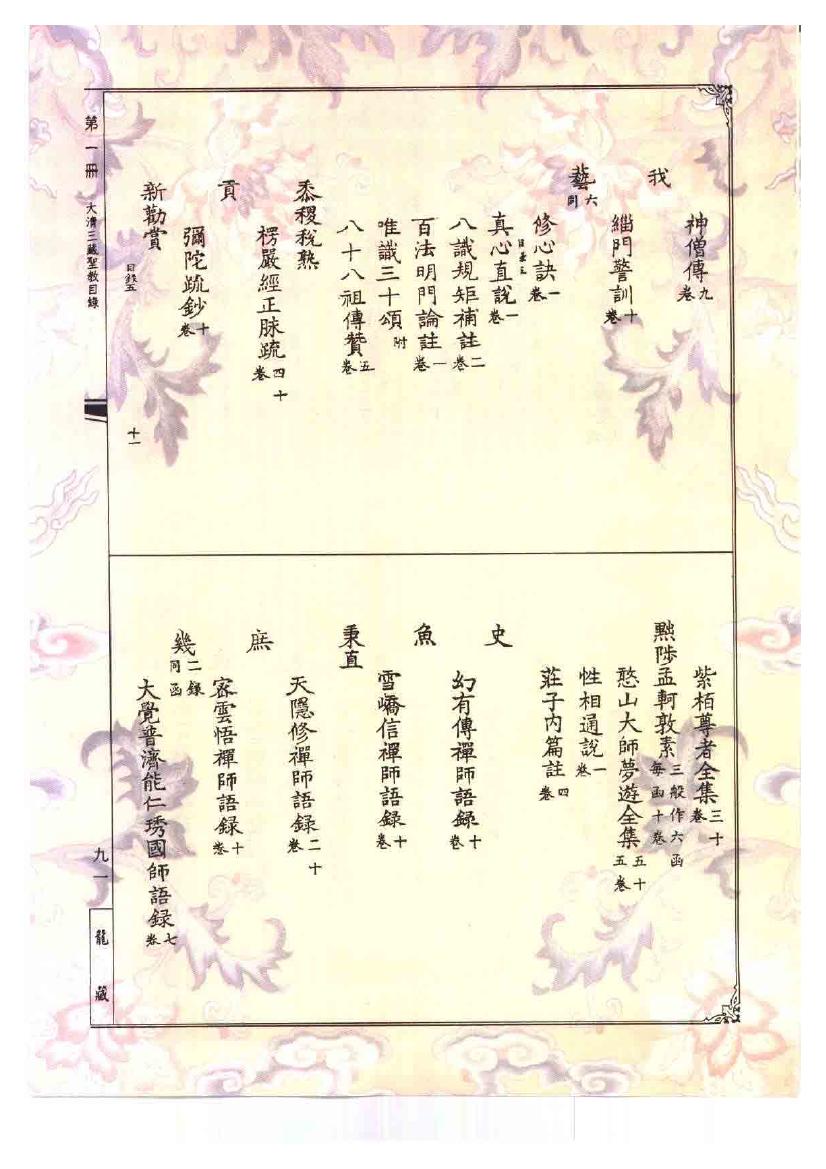 神僧傳九卷
我
緇門警訓十卷
藝六同
修心訣一卷
真心直說一卷
八識規矩補註二卷
百法明門論註一卷
唯識三十頌附
八十八祖傳贊五卷
黍稷稅熟
楞嚴經正脉疏四十卷
貢
彌陀疏鈔十卷
新勸賞
目錄五
十一
第一冊 大清三藏聖教目錄
紫栢尊者全集三十卷
黜陟孟軻敦素三般作六函每函十卷
憨山大師夢遊全集五十五卷
性相通說一卷
莊子内篇註四卷
史
幻有傳禪師語録十卷
魚
雪嶠信禪師語録十卷
秉直
天隱修禪師語録二十卷
庶
密雲悟禪師語録十卷
幾二録同函
大覺普濟能仁琇國師語録七卷
九一
龍藏